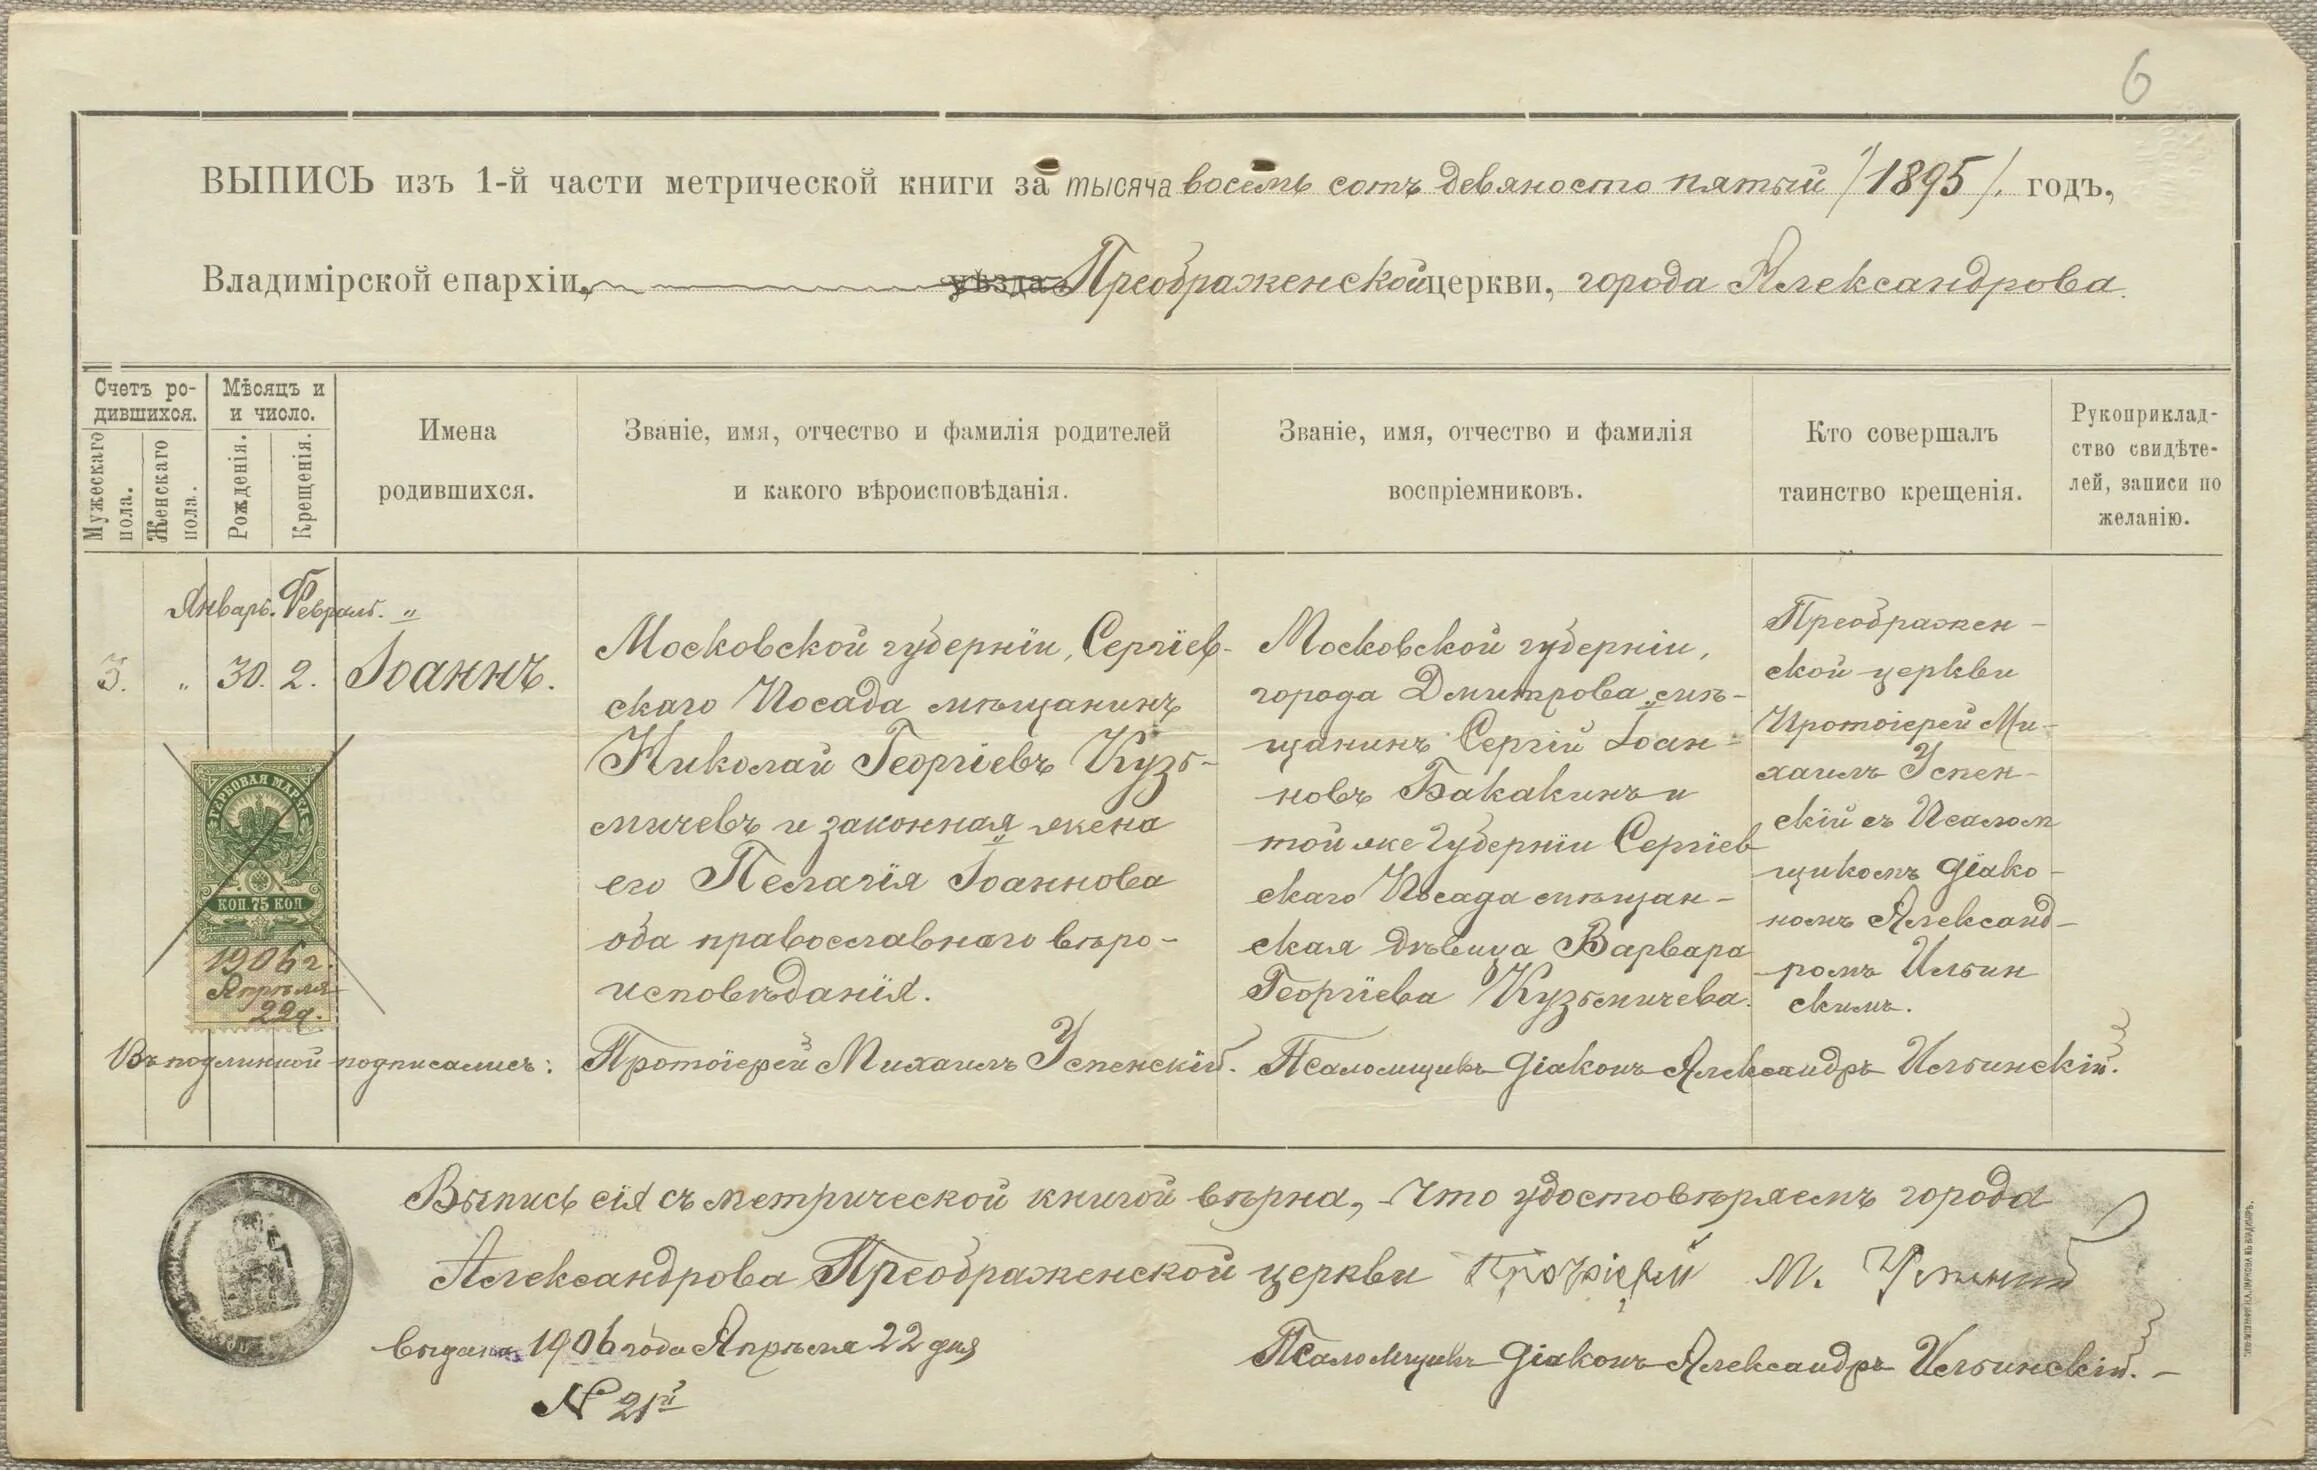 6
ВЫПИСЬ изъ 1-й части метрической книги за тысяча восемь сотъ девяносто пятый /1895/. годъ,
Владимірской епархіи, уѣзда Преображенской церкви, города Александрова.
Счетъ ро-
дившихся.
Мужескаго
пола.
Женскаго
пола.
Мѣсяцъ и
и число.
Рожденія.
Крещенія.
Имена
родившихся.
Званіе, имя, отчество и фамилія родителей
и какого вѣроисповѣданія.
Званіе, имя, отчество и фамилія
воспріемниковъ.
Кто совершалъ
таинство крещенія.
Рукоприклад-
ство свидѣте-
лей, записи по
желанію.
Январь. Февраль.
3. " 30. 2. Іоаннъ.
Московской губерніи, Сергіев-
скаго Посада мѣщанинъ
Николай Георгіевъ Кузь-
мичевъ и законная жена
его Пелагія Іоаннова
оба православнаго вѣро-
исповѣданія.
Московской губерніи,
города Дмитрова мѣ-
щанинъ Сергій Іоан-
новъ Бакакинъ и
той же губерніи Сергіев
скаго Посада мѣщан-
ская дѣвица Варвара
Георгіева Кузьмичева.
Преображен-
ской церкви
Протоіерей Ми-
хаилъ Успен-
скій съ Псалом
щикомъ діако-
номъ Александ-
ромъ Ильин
скимъ.
ГЕРБОВАЯ МАРКА
КОП. 75 КОП
1906 г.
Апрѣля
22 д.
Въ подлинной подписались: Протоіерей Михаилъ Успенскій. Псаломщикъ діаконъ Александръ Ильинскій.
Выпись сія съ метрической книгой вѣрна, что удостовѣряемъ города
Александрова Преображенской церкви Протоіерей М. Успенскій
выдана 1906 года Апрѣля 22 дня
Псаломщикъ діаконъ Александръ Ильинскій.
№ 21й